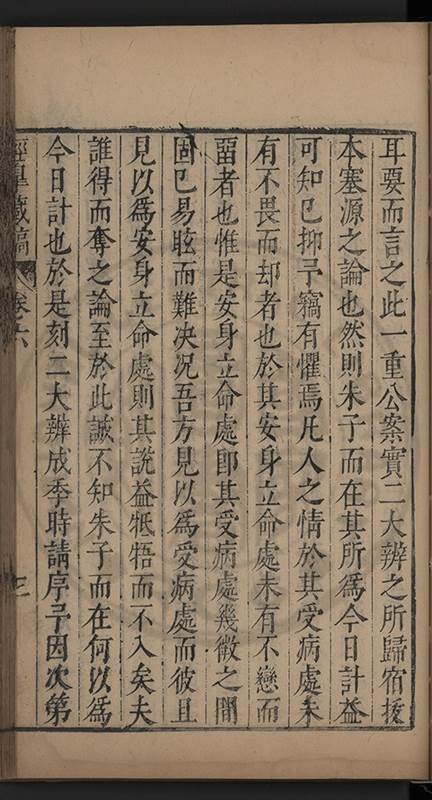 耳要而言之此一重公案實二大辨之所歸宿拔
本塞源之論也然則朱子而在其所爲今日計益
可知已抑予竊有懼焉凡人之情於其受病處未
有不畏而却者也於其安身立命處未有不戀而
留者也惟是安身立命處卽其受病處幾微之間
固已易眩而難决况吾方見以爲受病處而彼且
見以爲安身立命處則其說益牴牾而不入矣夫
誰得而奪之論至於此誠不知朱子而在何以爲
今日計也於是刻二大辨成季時請序予因次第
經臯藏稿 卷六 三